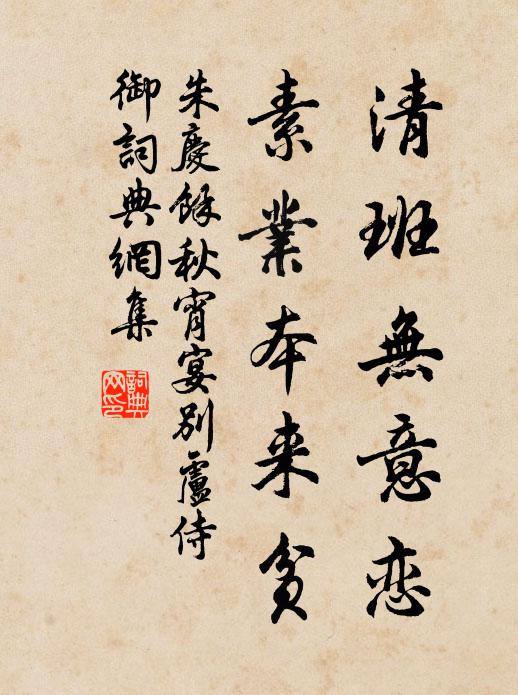 清班無意恋
素業本来貧
朱慶餘秋宵宴別盧侍
御詞典網集
詞典
网印